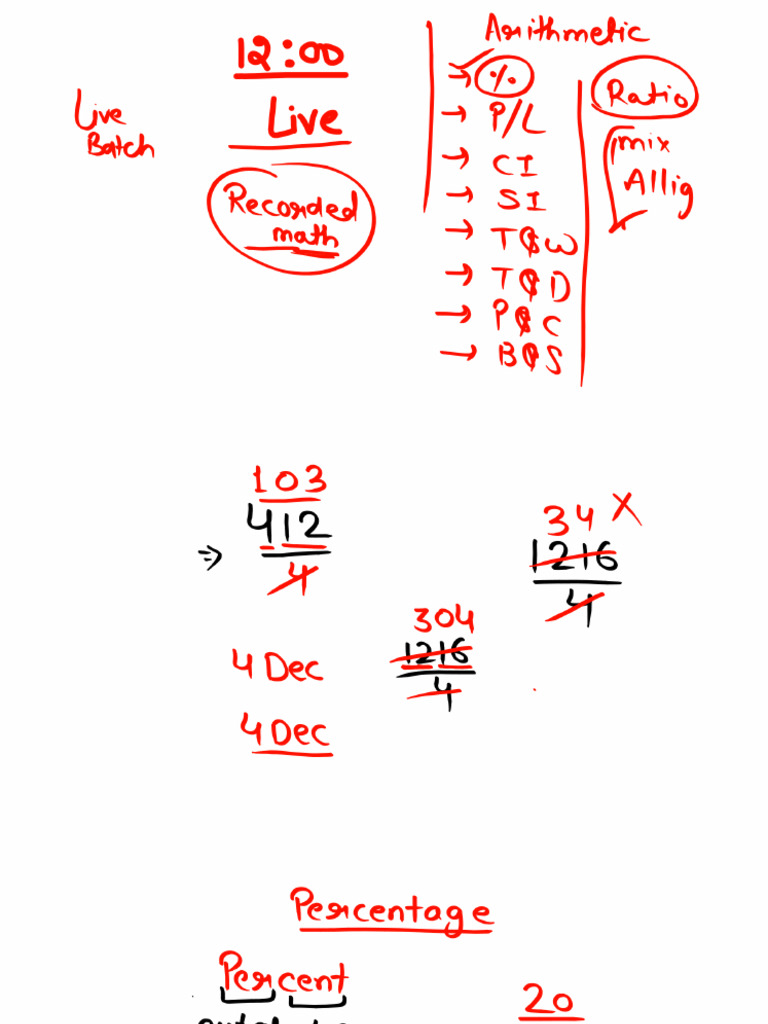 12:00
Live
Batch
Live
Recorded
math
Arithmetic
→ %
→ P/L
→ CI
→ SI
→ T&W
→ T&D
→ P&C
→ B&S
Ratio
mix
Allig
103
⇒ 412
4
34 X
1216
4
304
1216
4
4 Dec
4 Dec
Percentage
Percent
20